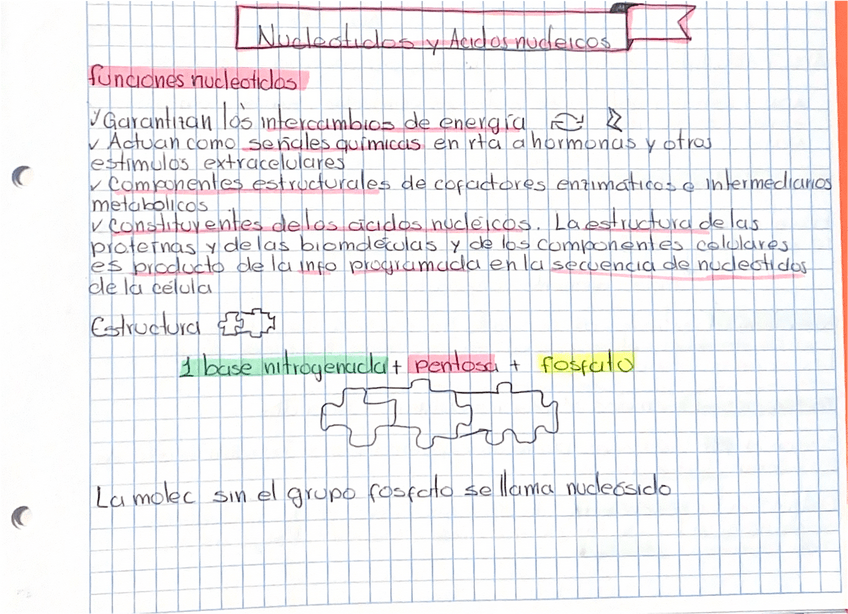 Nucleotidos y Acidos nucleicos
funciones nucleotidos
✓ Garantizan los intercambios de energía
✓ Actuan como señales químicas en rta a hormonas y otros
estímulos extracelulares
✓ Componentes estructurales de cofactores enzimáticos e intermediarios
metabolicos
✓ Constituyentes de los ácidos nucléicos. La estructura de las
proteínas y de las biomoléculas y de los componentes celulares
es producto de la info programada en la secuencia de nucleotidos
de la célula
Estructura
1 base nitrogenada + pentosa + fosfato
La molec sin el grupo fosfato se llama nucleósido